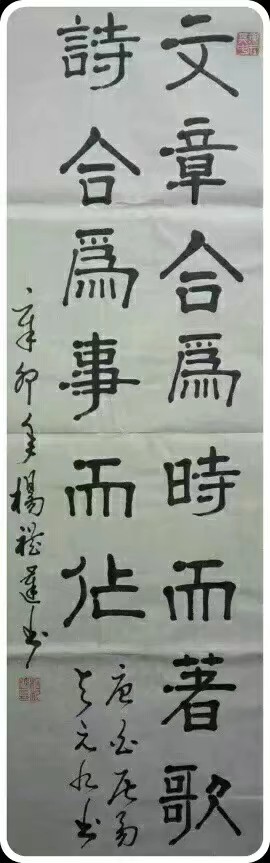 文章合爲時而著歌
詩合爲事而作
唐白居易
与元九书
辛卯年楊 蓬书